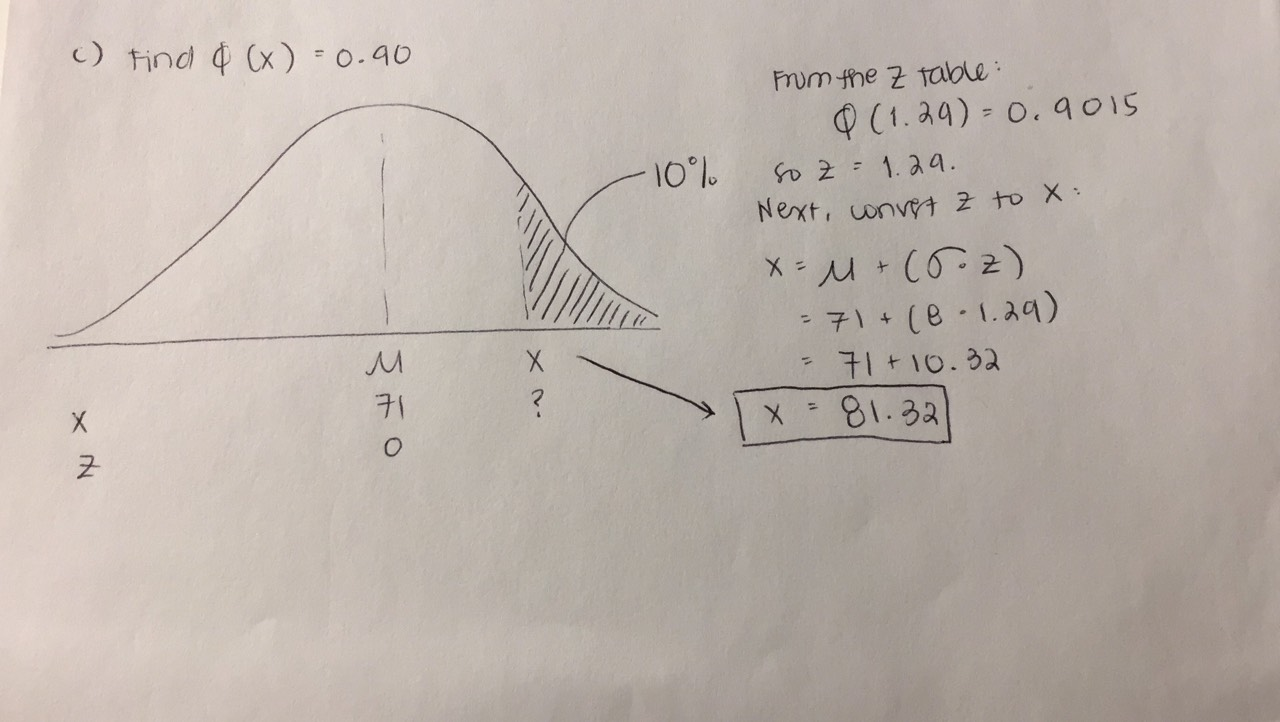 c) Find ϕ (x) = 0.90
10%
M
X
71
?
0
X
Z
From the Z table:
Φ (1.29) = 0.9015
so z = 1.29.
Next, convert z to X:
X = M + (σ · z)
= 71 + (8 · 1.29)
= 71 + 10.32
X = 81.32